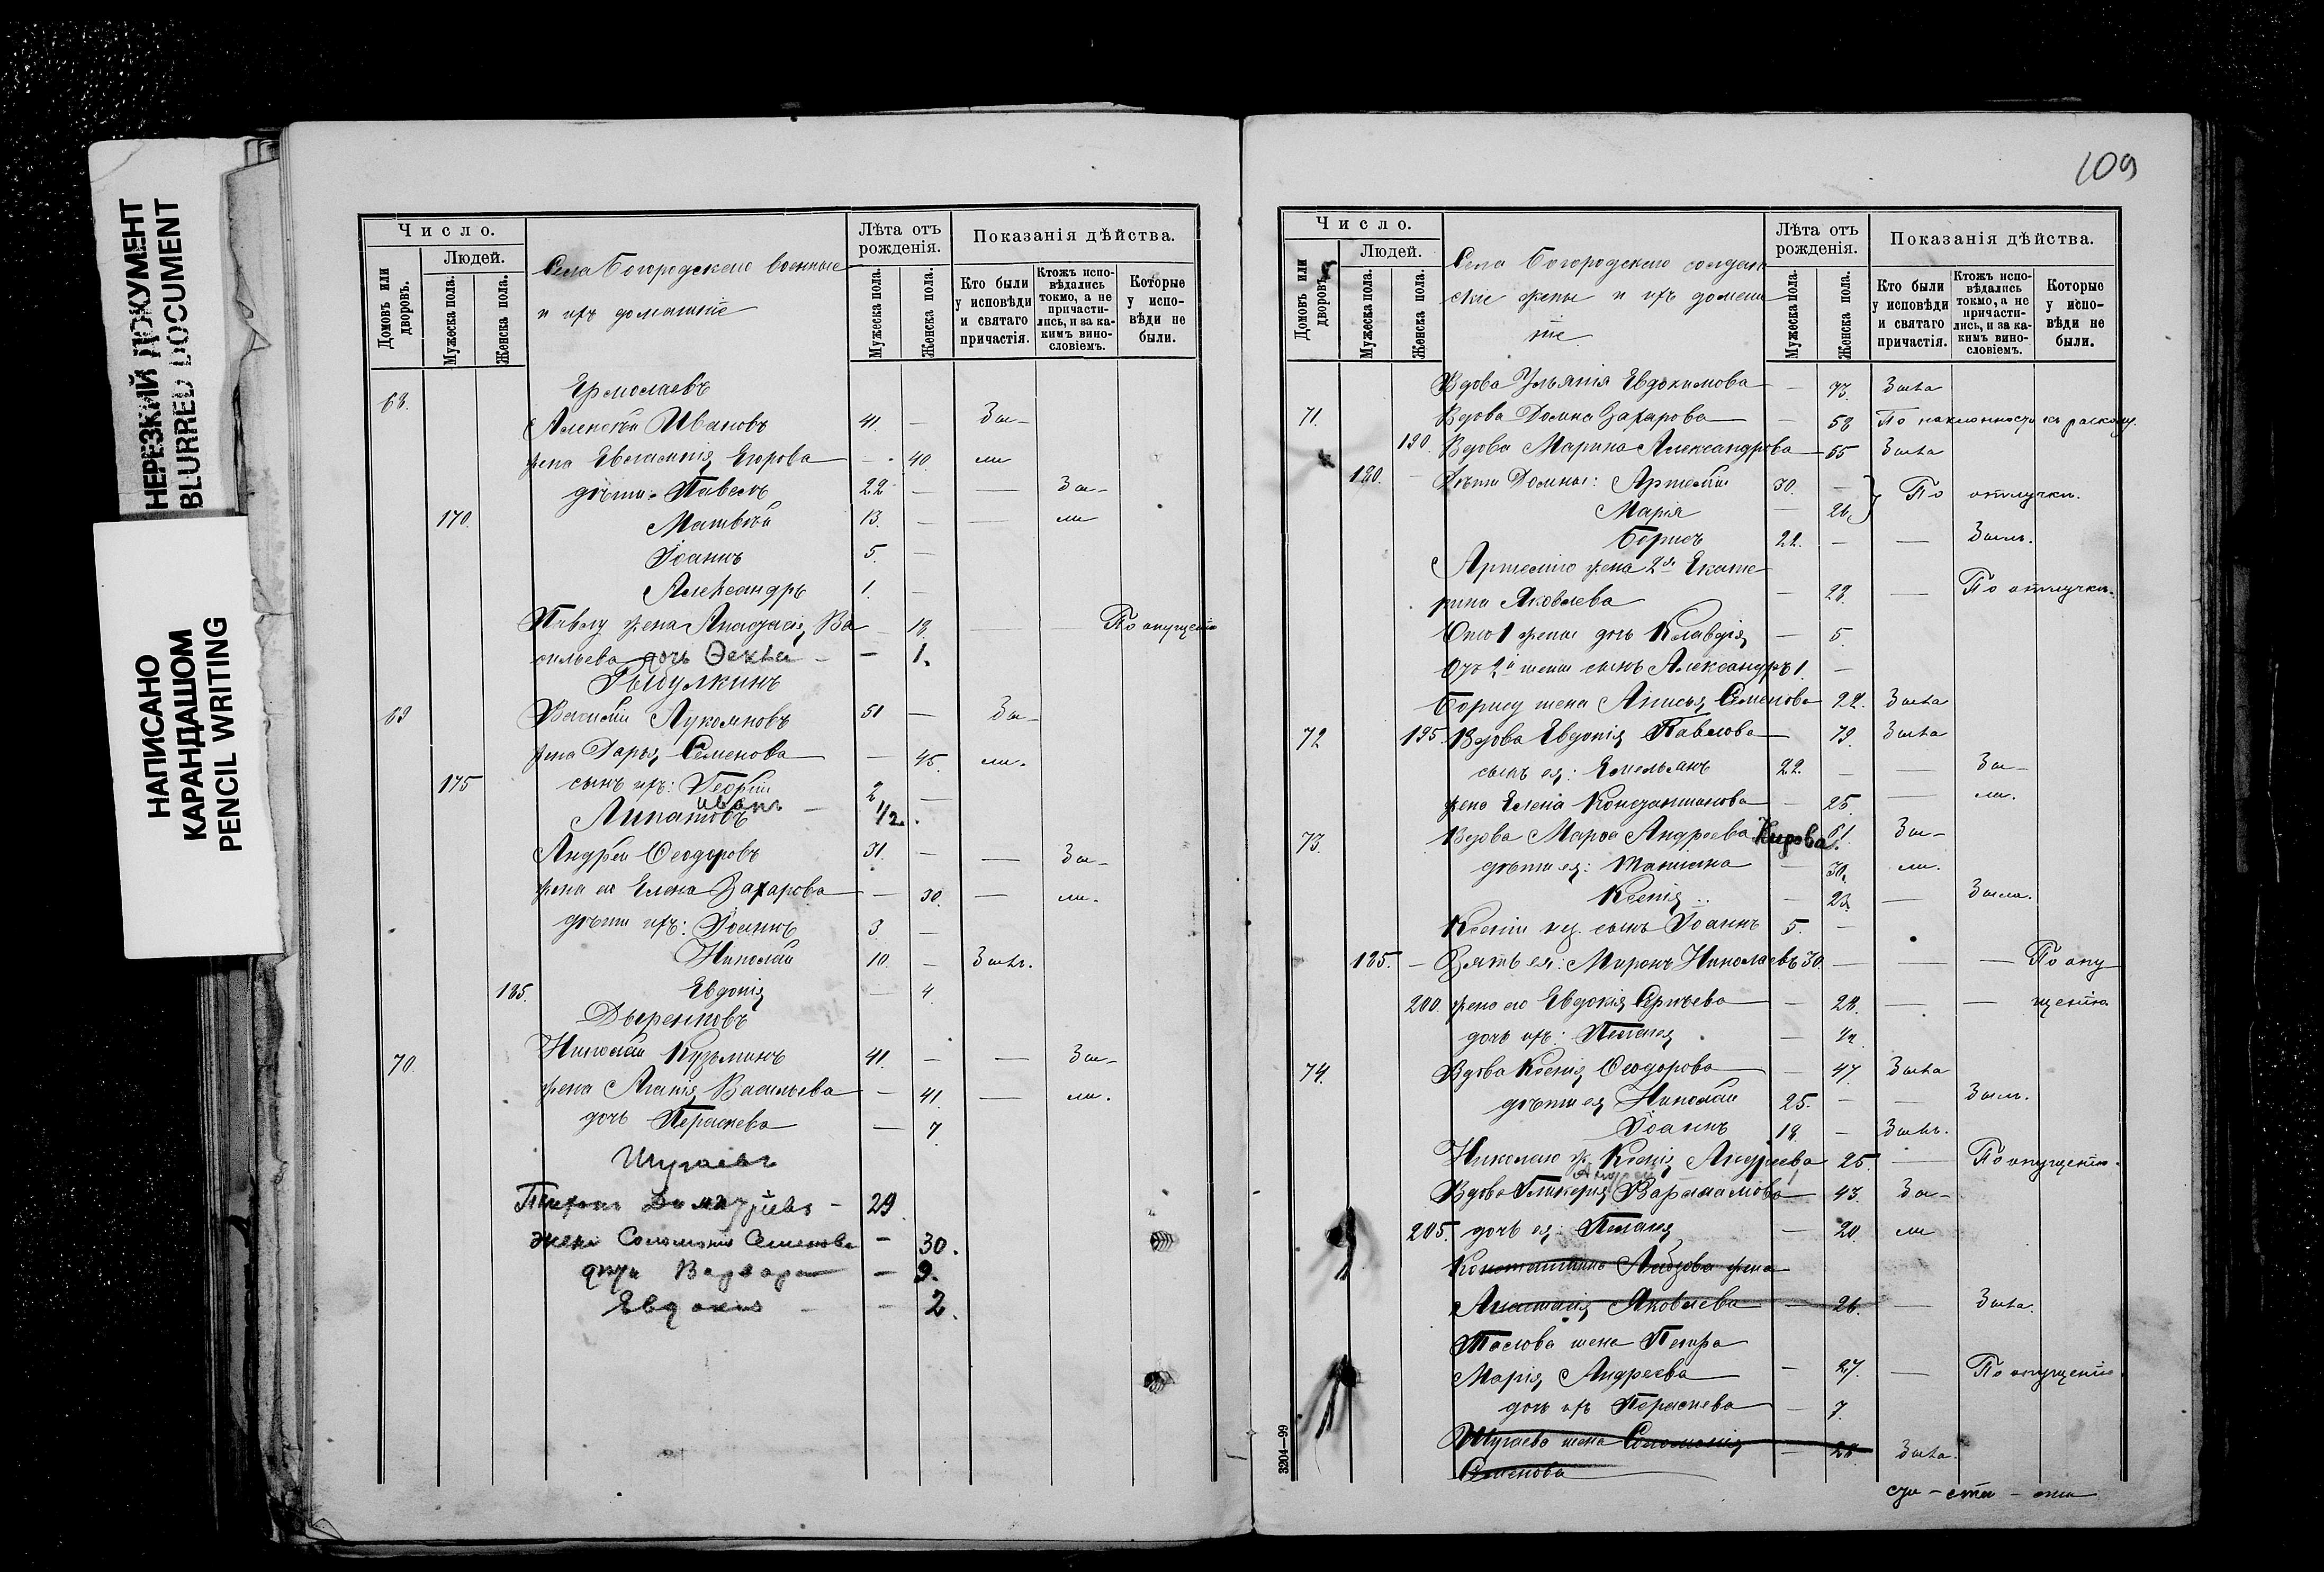 НЕРЕЗКИЙ ДОКУМЕНТ
BLURRED DOCUMENT
НАПИСАНО
КАРАНДАШОМ
PENCIL WRITING
Число.
Людей.
Домовъ или дворовъ.
Мужеска пола.
Женска пола.
Села Богородскаго военные
и ихъ домашніе
Лѣта отъ рожденія.
Мужеска пола.
Женска пола.
Показанія дѣйства.
Кто были у исповѣди и святаго причастія.
Ктожъ исповѣдались токмо, а не причастились, и за какимъ винословіемъ.
Которые у исповѣди не были.
Ермолаевъ
68. Алексѣй Ивановъ 41. — Бы-
жена Евлампія Егорова — 40. ли
дѣти: Павелъ 22 — — Бы-
170. Матвѣй 13. — — ли
Іоаннъ 5. —
Александръ 1. —
Павлу жена Анастасія Ва 18. По опущенію
сильева дочь Ѳекла — 1.
69 Василій Лукояновъ 51 — Бы-
жена Дарья Семенова — 45. ли.
175 сынъ ихъ: Георгій 2 —
Иванъ — 1/2.
Липатовъ
Андрей Ѳеодоровъ 31. — — Бы-
жена его Елена Захарова — 30. — ли.
дѣти ихъ: Іоаннъ 3. —
Николай 10. — Былъ.
185. Евдокія — 4.
70. Николай Кузьминъ 41. — — Бы-
жена Агапія Васильева — 41. — ли.
дочь Параскева — 7.
Шугаевъ
Тихонъ Димитріевъ — 29
жена Соломонія Семенова — 30.
дѣти Варвара — 9.
Евдокія — 2.
109
Число.
Людей.
Домовъ или дворовъ.
Мужеска пола.
Женска пола.
Села Богородскаго солдат
скіе жены и ихъ домаш
ніе
Лѣта отъ рожденія.
Мужеска пола.
Женска пола.
Показанія дѣйства.
Кто были у исповѣди и святаго причастія.
Ктожъ исповѣдались токмо, а не причастились, и за какимъ винословіемъ.
Которые у исповѣди не были.
Вдова Ульянія Евдокимова — 73. Была
71. Вдова Домна Захарова — 58 По наклонности къ расколу.
190. Вдова Марина Александрова — 55 Была
180. Дѣти Домны: Артемій 30. — По отлучкѣ.
Марія — 26.
Борисъ 22. — — Былъ.
Артемію жена 2я Екате
рина Яковлева — 28. — По отлучкѣ.
От 1 жены дочь Клавдія — 5.
От 2й жены сынъ Александръ 1. —
Борису жена Анисья Семенова 22. Была
72 195. Вдова Евдокія Павлова — 78. Была
сынъ ея: Емельянъ 22. — — Бы-
жена Елена Константинова — 25 — ли.
73. Вдова Марѳа Андреева Кирова. 61. Бы-
дѣти ея: Татіана — 30. ли.
Ксенія — 23. — Была.
Ксеніи нез. сынъ Іоаннъ 5. —
185. — Зять ея: Миронъ Николаевъ 30. — — — По опу
200. жена его Евдокія Сергѣева — 28. — — щенію
дочь ихъ: Пелагія — 1/2
74. Вдова Ксенія Ѳеодорова — 47. Была
дѣти ея Николай 25. — — Былъ.
Іоаннъ 18. — Былъ.
Николаю ж. Ксенія Андреева 25. — По опущенію.
Андрей 1
Вдова Гликерія Варламова — 43. Бы-
205. дочь ея: Пелагія — 20. ли
Константина Лабзова жена
Анастасія Яковлева — 26. — Была.
Маслова жена Петра
Марія Андреева — 27. — По опущенію.
дочь ихъ Параскева — 7.
Шугаева жена Соломонія — 28. Была.
Семенова
3204—99